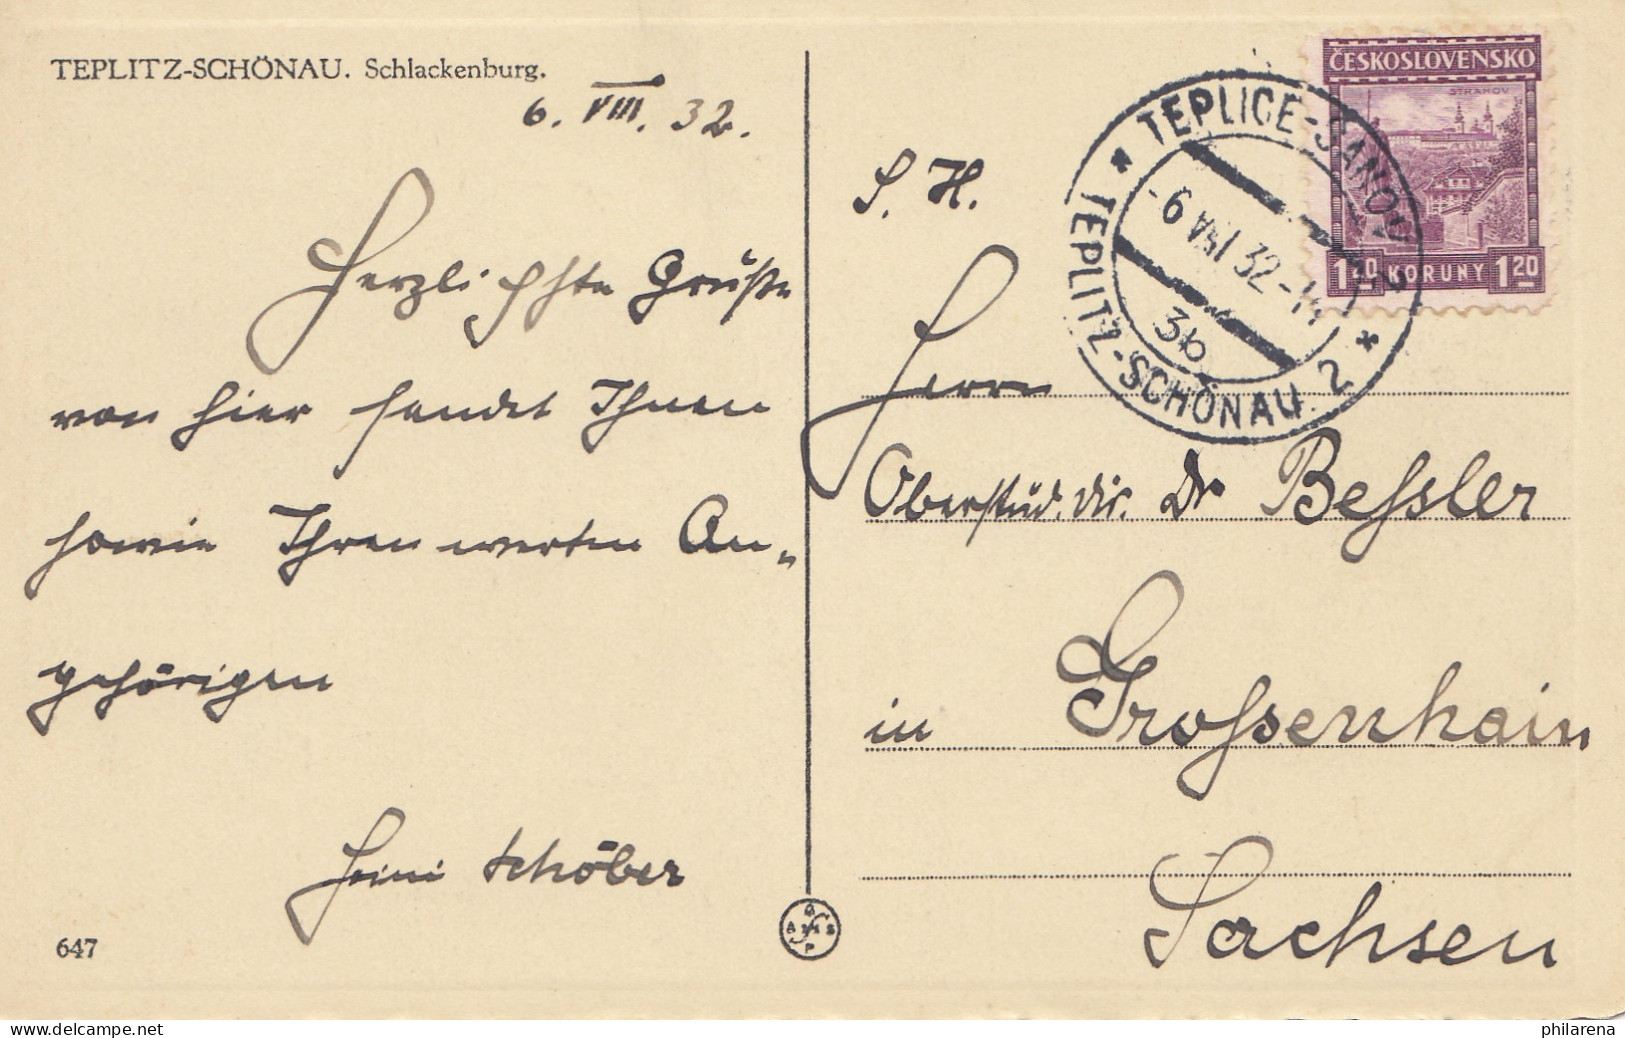 TEPLITZ-SCHÖNAU. Schlackenburg.
6. VIII. 32.
Herzlichste Grüße
von hier sendet Ihnen
sowie Ihren werten An-
gehörigen
Heini Schöber
647
ČESKOSLOVENSKO
STRAHOV
1 20 KORUNY 1 20
* TEPLICE-ŠANOV 2 *
-6 VIII 32-14
3b
TEPLITZ-SCHÖNAU. 2
S. H.
Herrn
Oberstud. dir. Dr Bessler
in Grossenhain
Sachsen
philarena.com